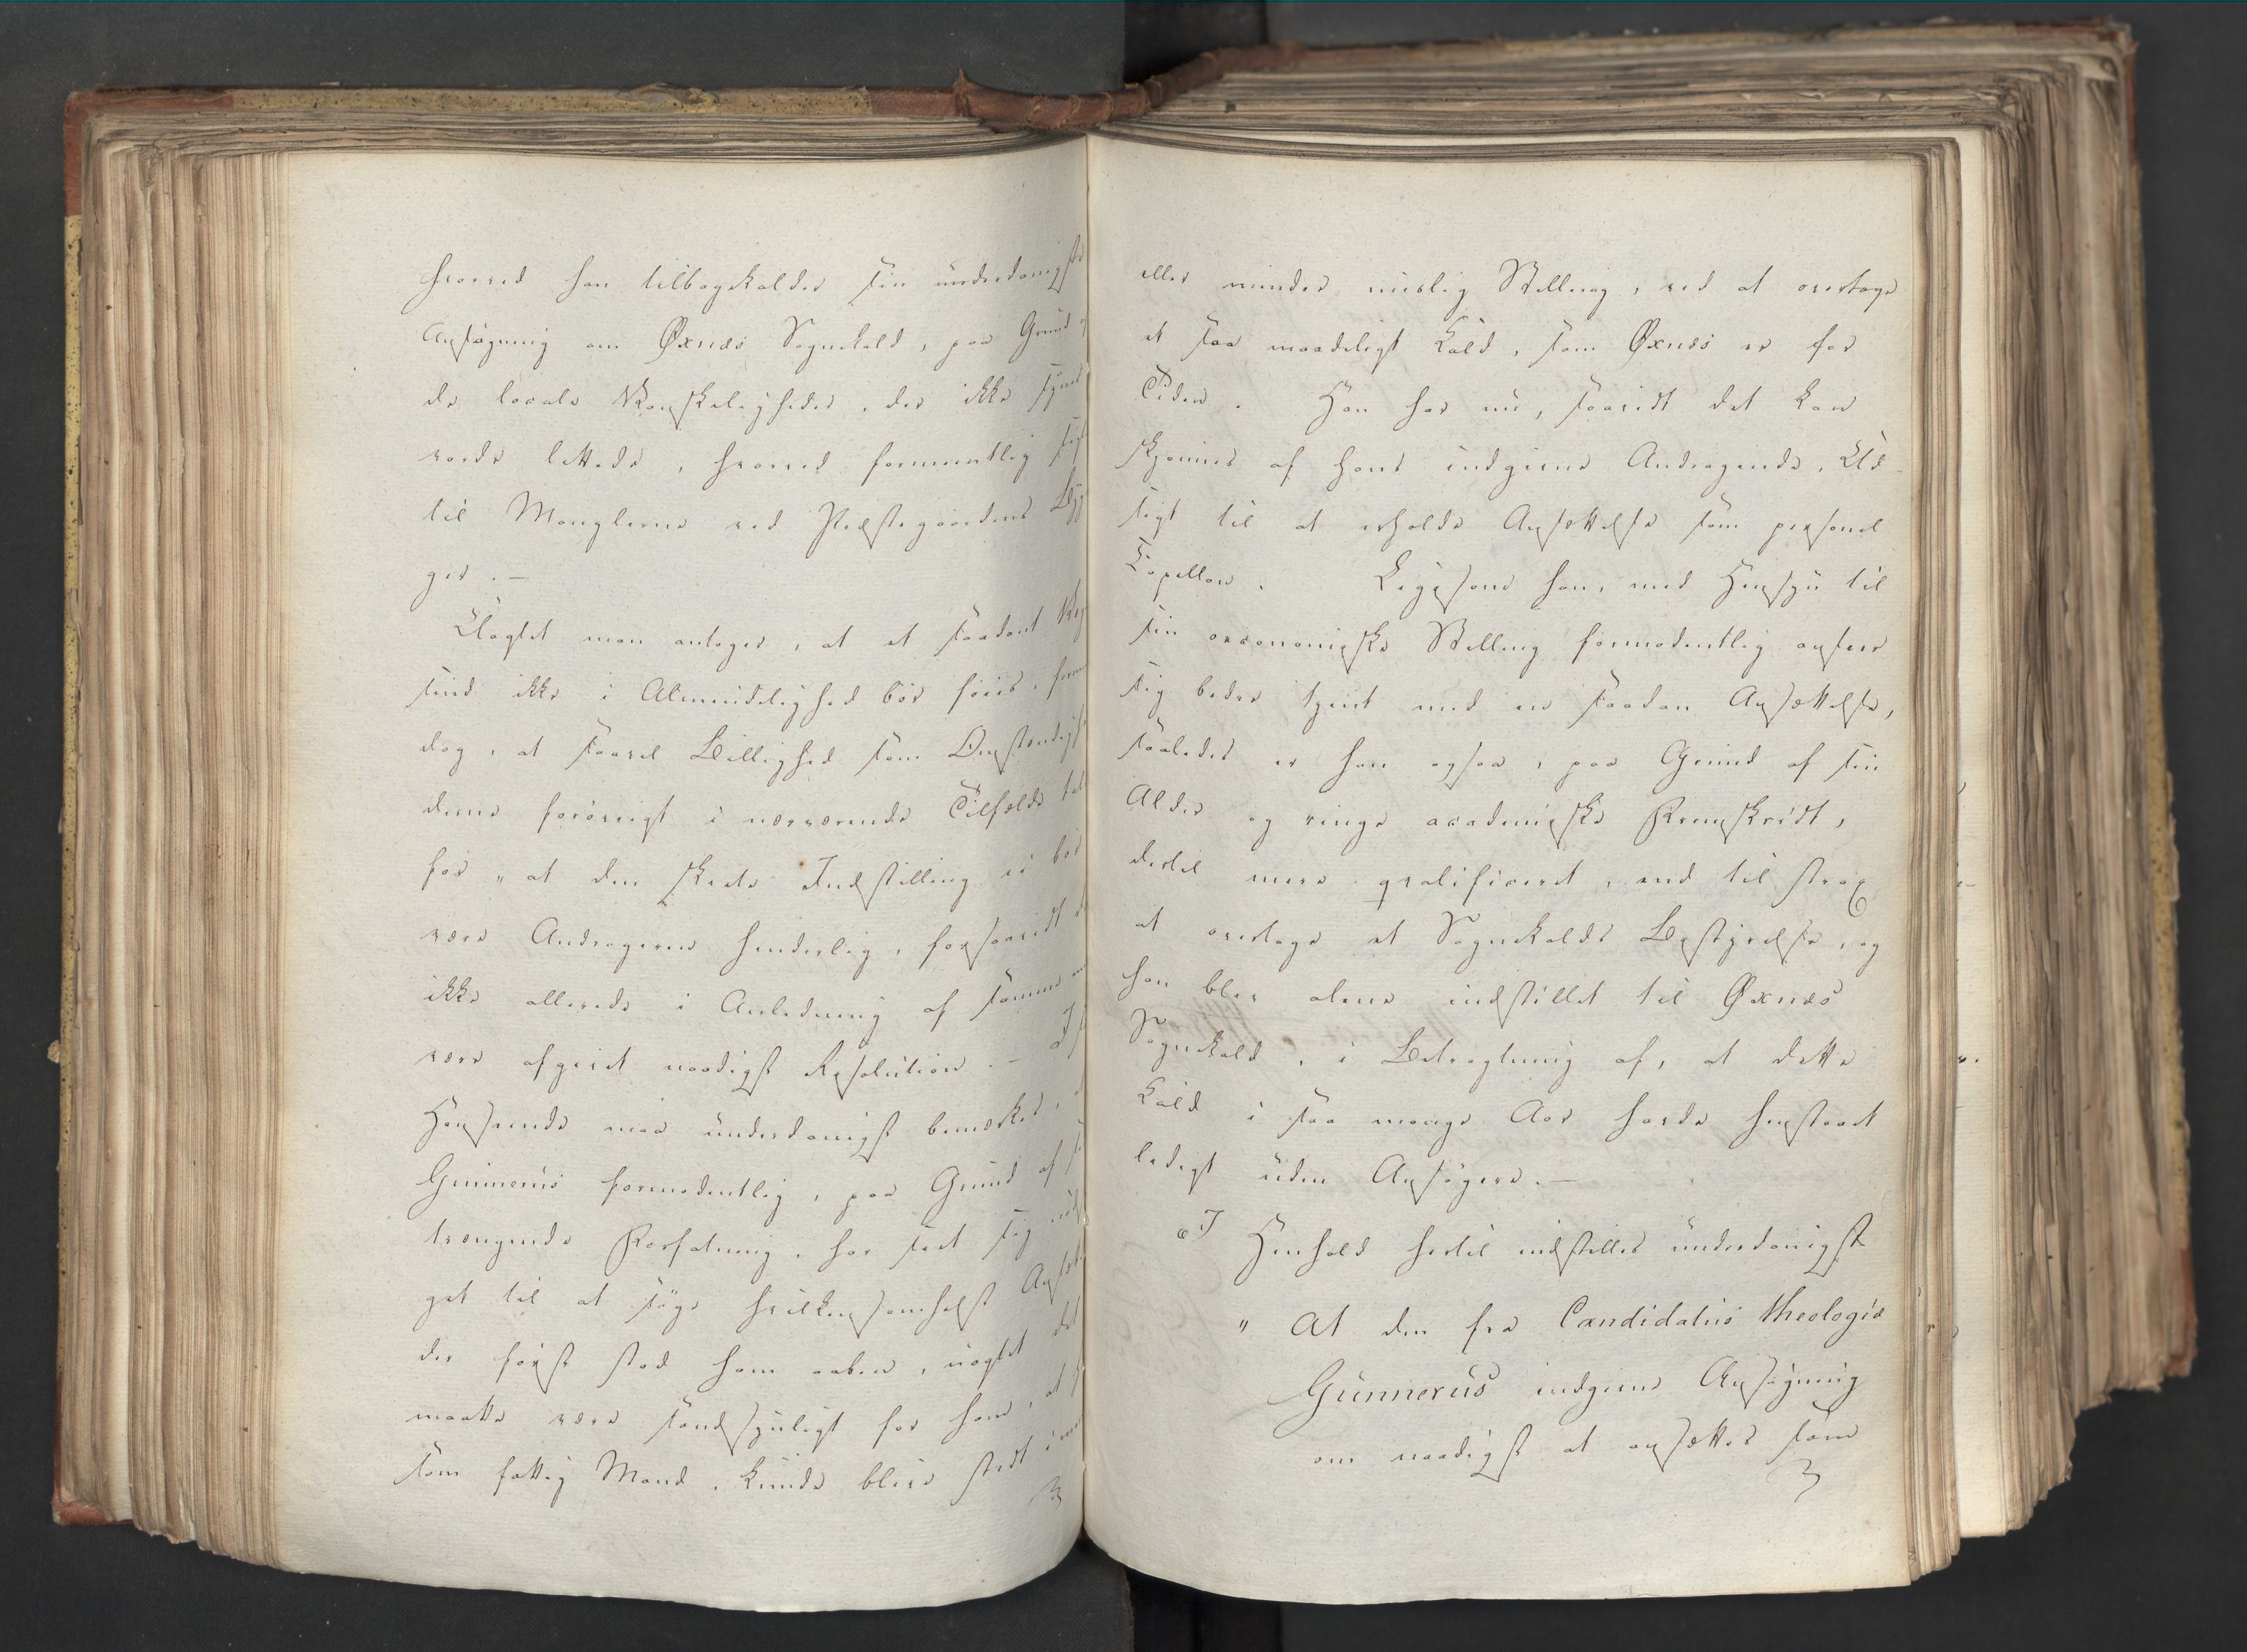 hvorved han tilbagekalder sin underdanigste
Ansøgning om Øxnæs Sognekald, paa Grund af
de locale Vanskeligheder, der ikke synes
vorde lettede, hvorved formeentlig sigtes
til Manglerne ved Præstegaardens Byg-
ger.—
Uagtet man antager, at et saadant
sind ikke i Almindelighed bør føies,
dog, at saavel Billighed som Omstændighe-
derne forøvrigt i nærværende Tilfælde taler
for „ at den skeete Indstilling ei bør
være Andrageren hinderlig, forsaavidt
ikke allerede i Anledning af samme
være afgivet naadigst Resolution.— I
Hensende maa underdanigst bemærkes,
Gunnerus formodentlig, paa Grund af
trængende Forfatning, har seet sig nød-
get til at søge hvilkensomhelst
der først stod ham aaben, uagtet det
maatte være sandsynligt for ham, at
som fattig Mand, kunde blive stedt i
eller mindre mislig Stilling, ved at overtage
et saa maadeligt Kald, som Øxnæs er for
Tiden. Han har nu, saavidt det kan
skjønnes af hans indgivne Andragende, Ud-
sigt til at erholde Ansættelse som personel
Capellan. Ligesom han, med Hensyn til
sin oeconomiske Stilling formodentlig anseer
sig bedre tjent med en saadan Ansættelse,
saaledes er han ogsaa, paa Grund af sin
Alder og ringe academiske Fremskridt,
dertil mere qvalificeret, end til strax
at overtage et Sognekalds Bestyrelse, og
han blev alene indstillet til Øxnæs
Sognekald, i Betragtning af, at dette
Kald i saa mange Aar havde henstaaet
ledigt uden Ansøgere.—
I Henhold hertil indstilles underdanigst
„ At den fra Candidatus theologiæ
Gunnerus indgivne Ansøgning
om naadigst at ansættes som